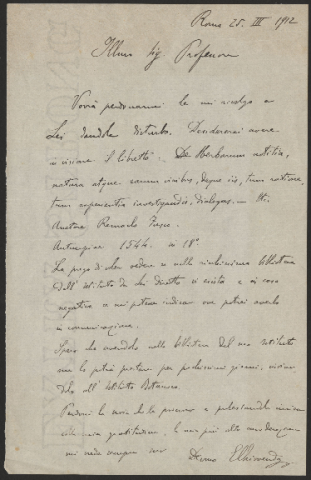 Roma 25. III 1912
Illmo Sig. Professore
Vorrà perdonarmi se mi rivolgo a
Lei dandole disturbo. Desidererei avere
in visione il libretto. De Herbarum notitia,
natura atque viribus, deque iis, tum ratione,
tum experientia investigandis, dialogus.
Auctore Remaclo Fusce
Antuerpiae 1544. in 18°
La prego di voler vedere se nella Biblioteca
dell'Istituto da Lei diretto ci esista e in caso
negativo se mi potesse indicare ove potrei averlo
in comunicazione.
Spero che avendolo nella Biblioteca del suo Istituto
me lo potrà prestare per pochissimi giorni,
dolo all'Istituto Botanico.
Perdoni la noia che le procuro e
alla mia gratitudine, la mia più alta considerazione
mi creda sempre suo
Devmo